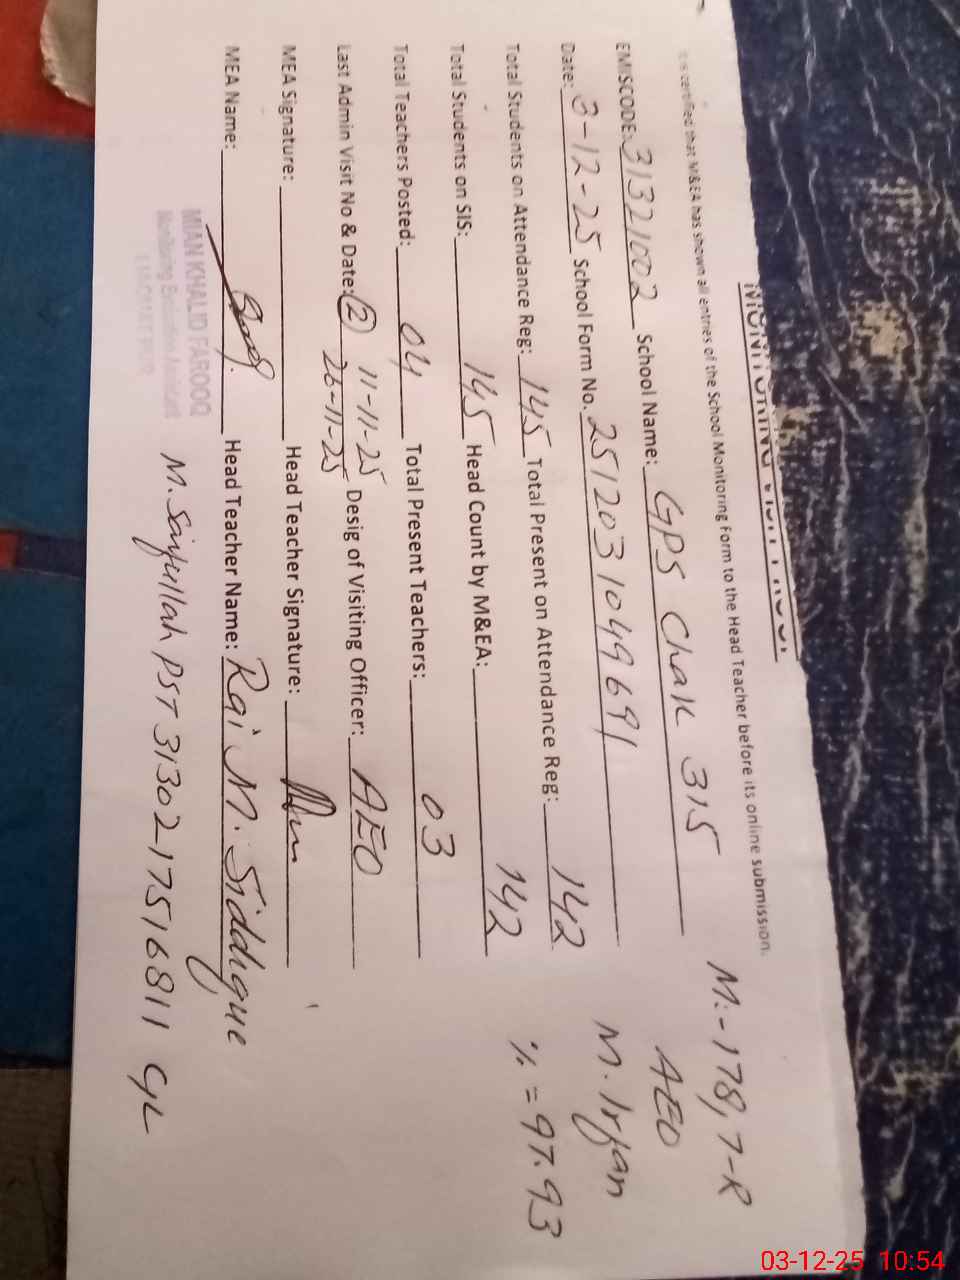 MONITORING VISIT PROOF
It is certified that M&EA has shown all entries of the School Monitoring Form to the Head Teacher before its online submission.
EMISCODE: 31321002 School Name: GPS Chak 315
Date: 3-12-25 School Form No. 2512031049691
Total Students on Attendance Reg: 145 Total Present on Attendance Reg: 142
Total Students on SIS: 145 Head Count by M&EA: 142
Total Teachers Posted: 04 Total Present Teachers: 03
Last Admin Visit No & Date: (2) 11-11-25 Desig of Visiting Officer: AEO
26-11-25
MEA Signature: Head Teacher Signature:
MEA Name: Head Teacher Name: Rai M. Siddique
MIAN KHALID FAROOQ
Monitoring Evaluation Assistant
M. Saifullah PST 31302-1751681 1 CL
M:-178, 7-R
AEO
M. Irfan
% = 97.93
03-12-25 10:54